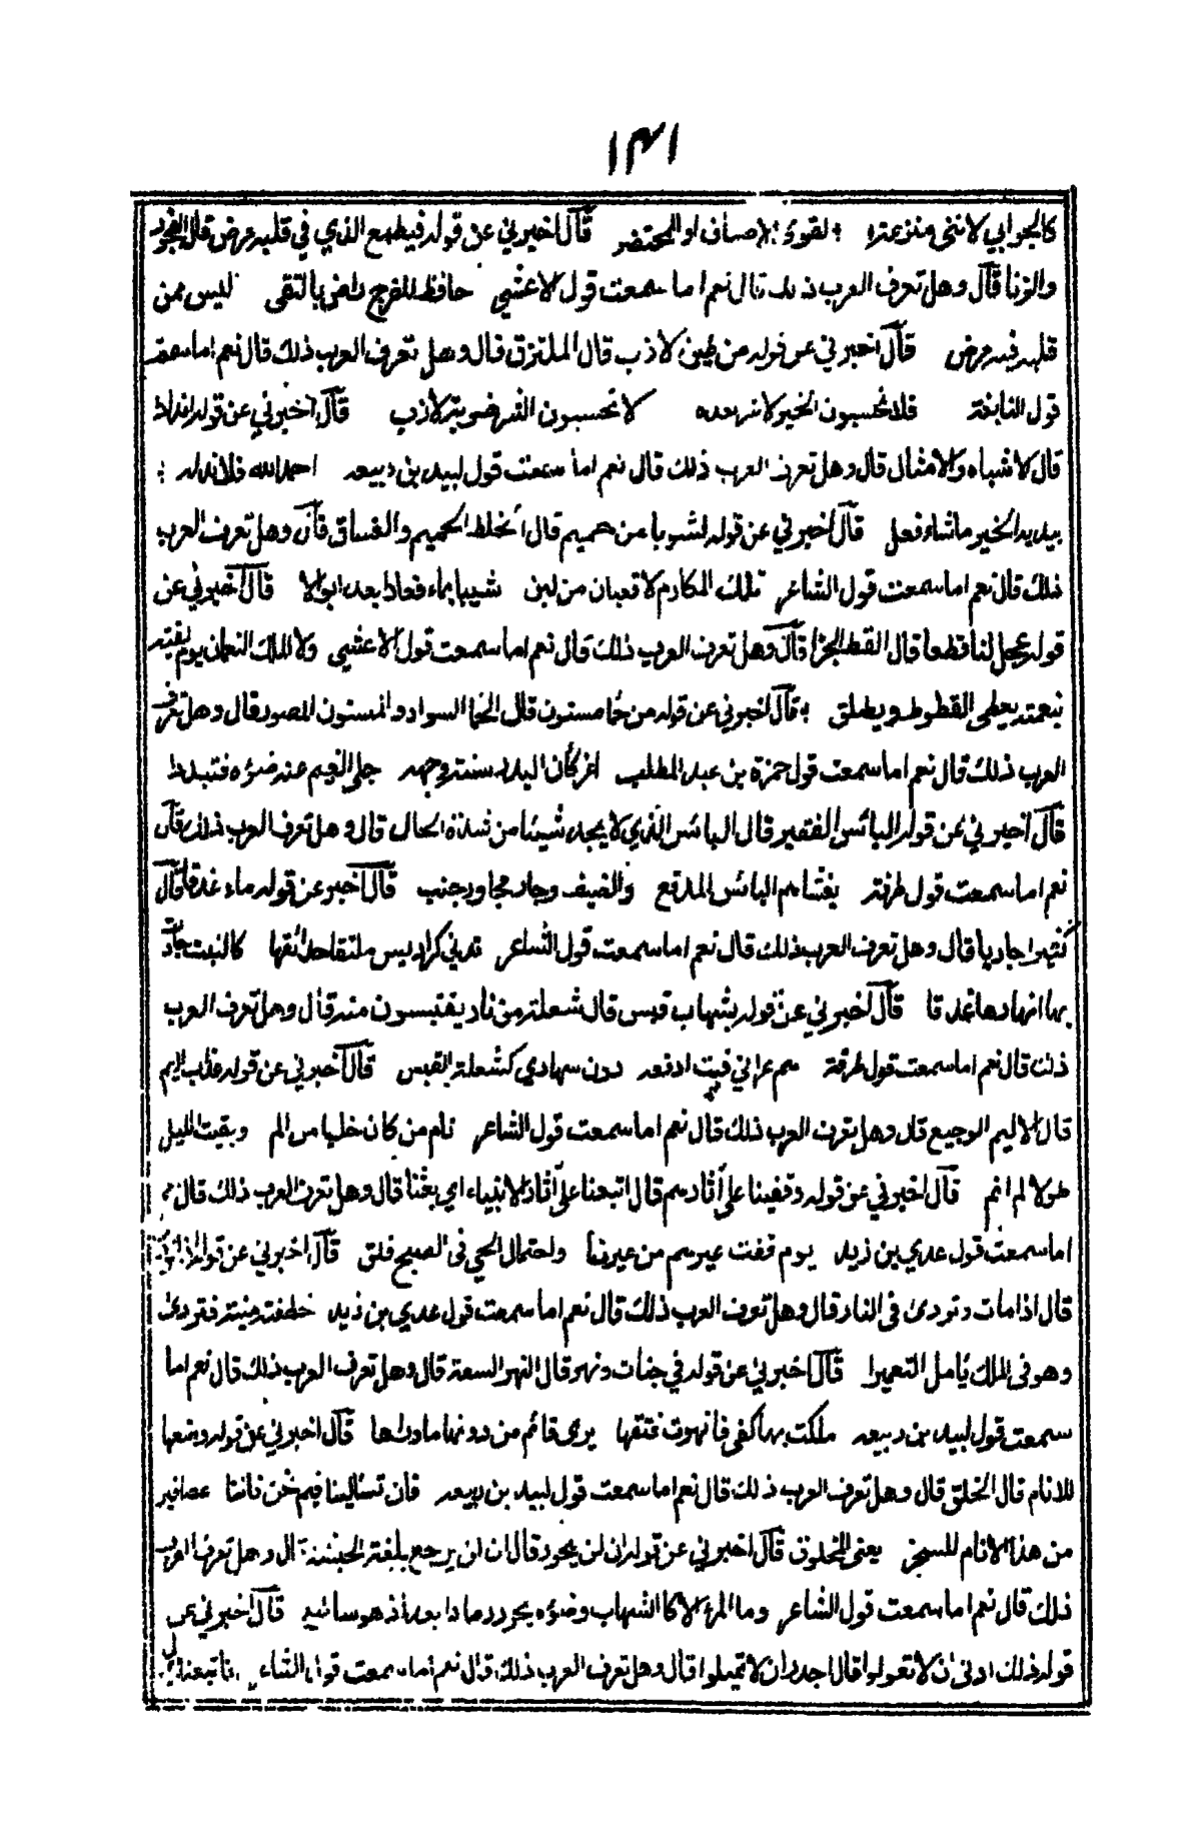 ١٣١
كالجوابي لا تنى منزعة لقرى الاضياف او المحتضر قال اخبرني عن قوله فيطمع الذي في قلبه مرض قال الفجور
والزنا قال وهل تعرف العرب ذلك قال نعم اما سمعت قول الاعشى حافظ للفرج راض بالتقى ليس ممن
قلبه فيه مرض قال اخبرني عن قوله من طين لازب قال الملتزق قال وهل تعرف العرب ذلك قال نعم اما سمعت
قول النابغة فلا تحسبون الخير لا شر بعده لا تحسبون الشر ضربة لازب قال اخبرني عن قوله اندادا
قال الاشباه والامثال قال وهل تعرف العرب ذلك قال نعم اما سمعت قول لبيد بن ربيعه احمد الله فلا ند له
بيديه الخير ما شاء فعل قال اخبرني عن قوله لشوبا من حميم قال الخلط الحميم والغساق قال وهل تعرف العرب
ذلك قال نعم اما سمعت قول الشاعر تلك المكارم لا قعبان من لبن شيبا بماء فعادا بعد ابوالا قال اخبرني عن
قوله عجل لنا قطنا قال القط الجزا قال وهل تعرف العرب ذلك قال نعم اما سمعت قول الاعشى ولا الملك النعمان يوم لقيته
بنعمته يعطي القطوط ويطلق قال اخبرني عن قوله من حما مسنون قال الحما السواد والمسنون المصور قال وهل تعرف
العرب ذلك قال نعم اما سمعت قول حمزة بن عبد المطلب اغر كأن البدر سنة وجهه جلى الغيم عنه ضوءه فتبددا
قال اخبرني عن قوله البائس الفقير قال البائس الذي لا يجد شيئا من شدة الحال قال وهل تعرف العرب ذلك قال
نعم اما سمعت قول طرفة يغشاهم البائس المدقع والضيف وجار مجاور جنب قال اخبر عن قوله ماء غدقا قال
كثيرا جاريا قال وهل تعرف العرب ذلك قال نعم اما سمعت قول الشاعر تدني كراديس ملتفا حدائقها كالنبت جادت
بها انهارها غدقا قال اخبرني عن قوله بشهاب قبس قال شعلة من نار يقتبسون منه قال وهل تعرف العرب
ذلك قال نعم اما سمعت قول طرفة هم عراني فبت ادفعه دون سهادي كشعلة القبس قال اخبرني عن قوله عذاب اليم
قال الاليم الوجيع قال وهل تعرف العرب ذلك قال نعم اما سمعت قول الشاعر نام من كان خليا من الم وبقيت الليل
طولا لم انم قال اخبرني عن قوله وقفينا على آثارهم قال اتبعنا على آثار الانبياء اي بعثنا قال وهل تعرف العرب ذلك قال نعم
اما سمعت قول عدي بن زيد يوم قفت عيرهم من عيرنا واحتمال الحي في الصبح فلق قال اخبرني عن قوله اذا تردى
قال اذا مات وتردى في النار قال وهل تعرف العرب ذلك قال نعم اما سمعت قول عدي بن زيد خطفته منية فتردى
وهو في الملك يأمل التعميرا قال اخبرني عن قوله في جنات ونهر قال النهر السعة قال وهل تعرف العرب ذلك قال نعم اما
سمعت قول لبيد بن ربيعه ملكت بها كفى فانهرت فتقها يرى قائم من دونها ما وراءها قال اخبرني عن قوله وضعها
للانام قال الخلق قال وهل تعرف العرب ذلك قال نعم اما سمعت قول لبيد بن ربيعه فان تسئلينا فيم نحن فاننا عصافير
من هذا الانام المسحر يعنى المخلوق قال اخبرني عن قوله ان لن يحور قال ان لن يرجع بلغة الحبشة قال وهل تعرف العرب
ذلك قال نعم اما سمعت قول الشاعر وما المرء الا كالشهاب وضوءه يحور رمادا بعد اذ هو ساطع قال اخبرني عن
قوله ذلك ادنى ان لا تعولوا قال اجدر ان لا تميلوا قال وهل تعرف العرب ذلك قال نعم اما سمعت قول الشاعر انا تبعنا